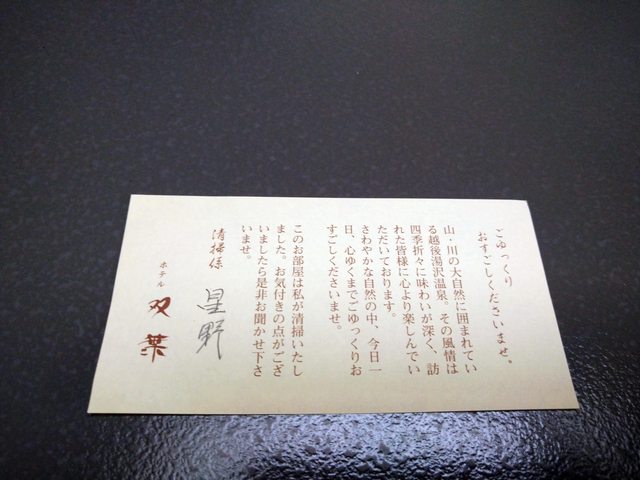 ごゆっくり
おすごしくださいませ。
山・川の大自然に囲まれてい
る越後湯沢温泉。その風情は
四季折々に味わいが深く、訪
れた皆様に心より楽しんでい
ただいております。
さわやかな自然の中、今日一
日、心ゆくまでごゆっくりお
すごしくださいませ。
このお部屋は私が清掃いたし
ました。お気付きの点がござ
いましたら是非お聞かせ下さ
いませ。
清掃係 星野
ホテル 双葉